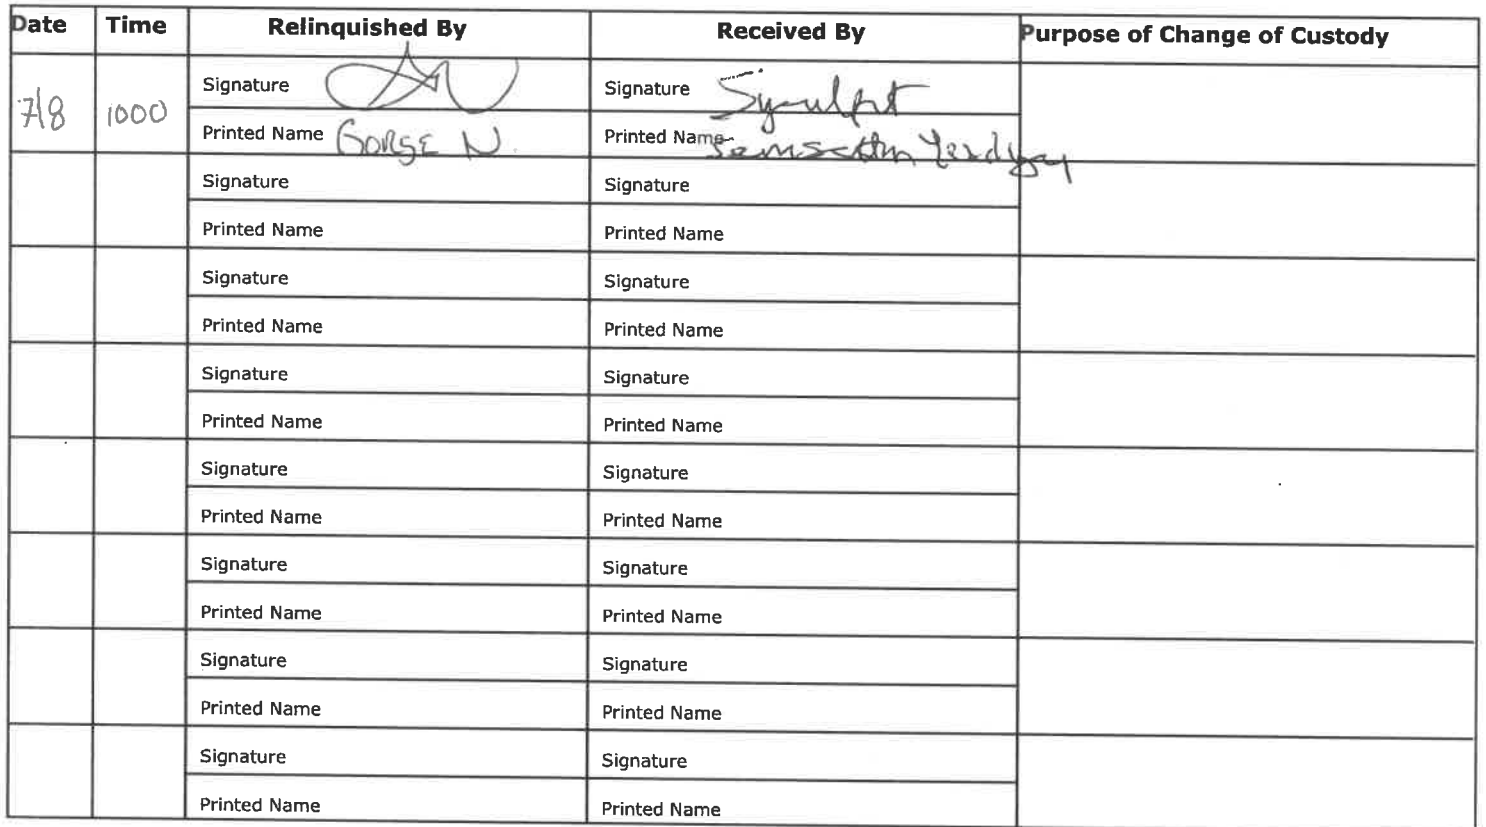 Date Time Relinquished By Received By Purpose of Change of Custody
Signature Signature
7/8 1000
Printed Name GORGE N. Printed Name
Signature Signature
Printed Name Printed Name
Signature Signature
Printed Name Printed Name
Signature Signature
Printed Name Printed Name
Signature Signature
Printed Name Printed Name
Signature Signature
Printed Name Printed Name
Signature Signature
Printed Name Printed Name
Signature Signature
Printed Name Printed Name